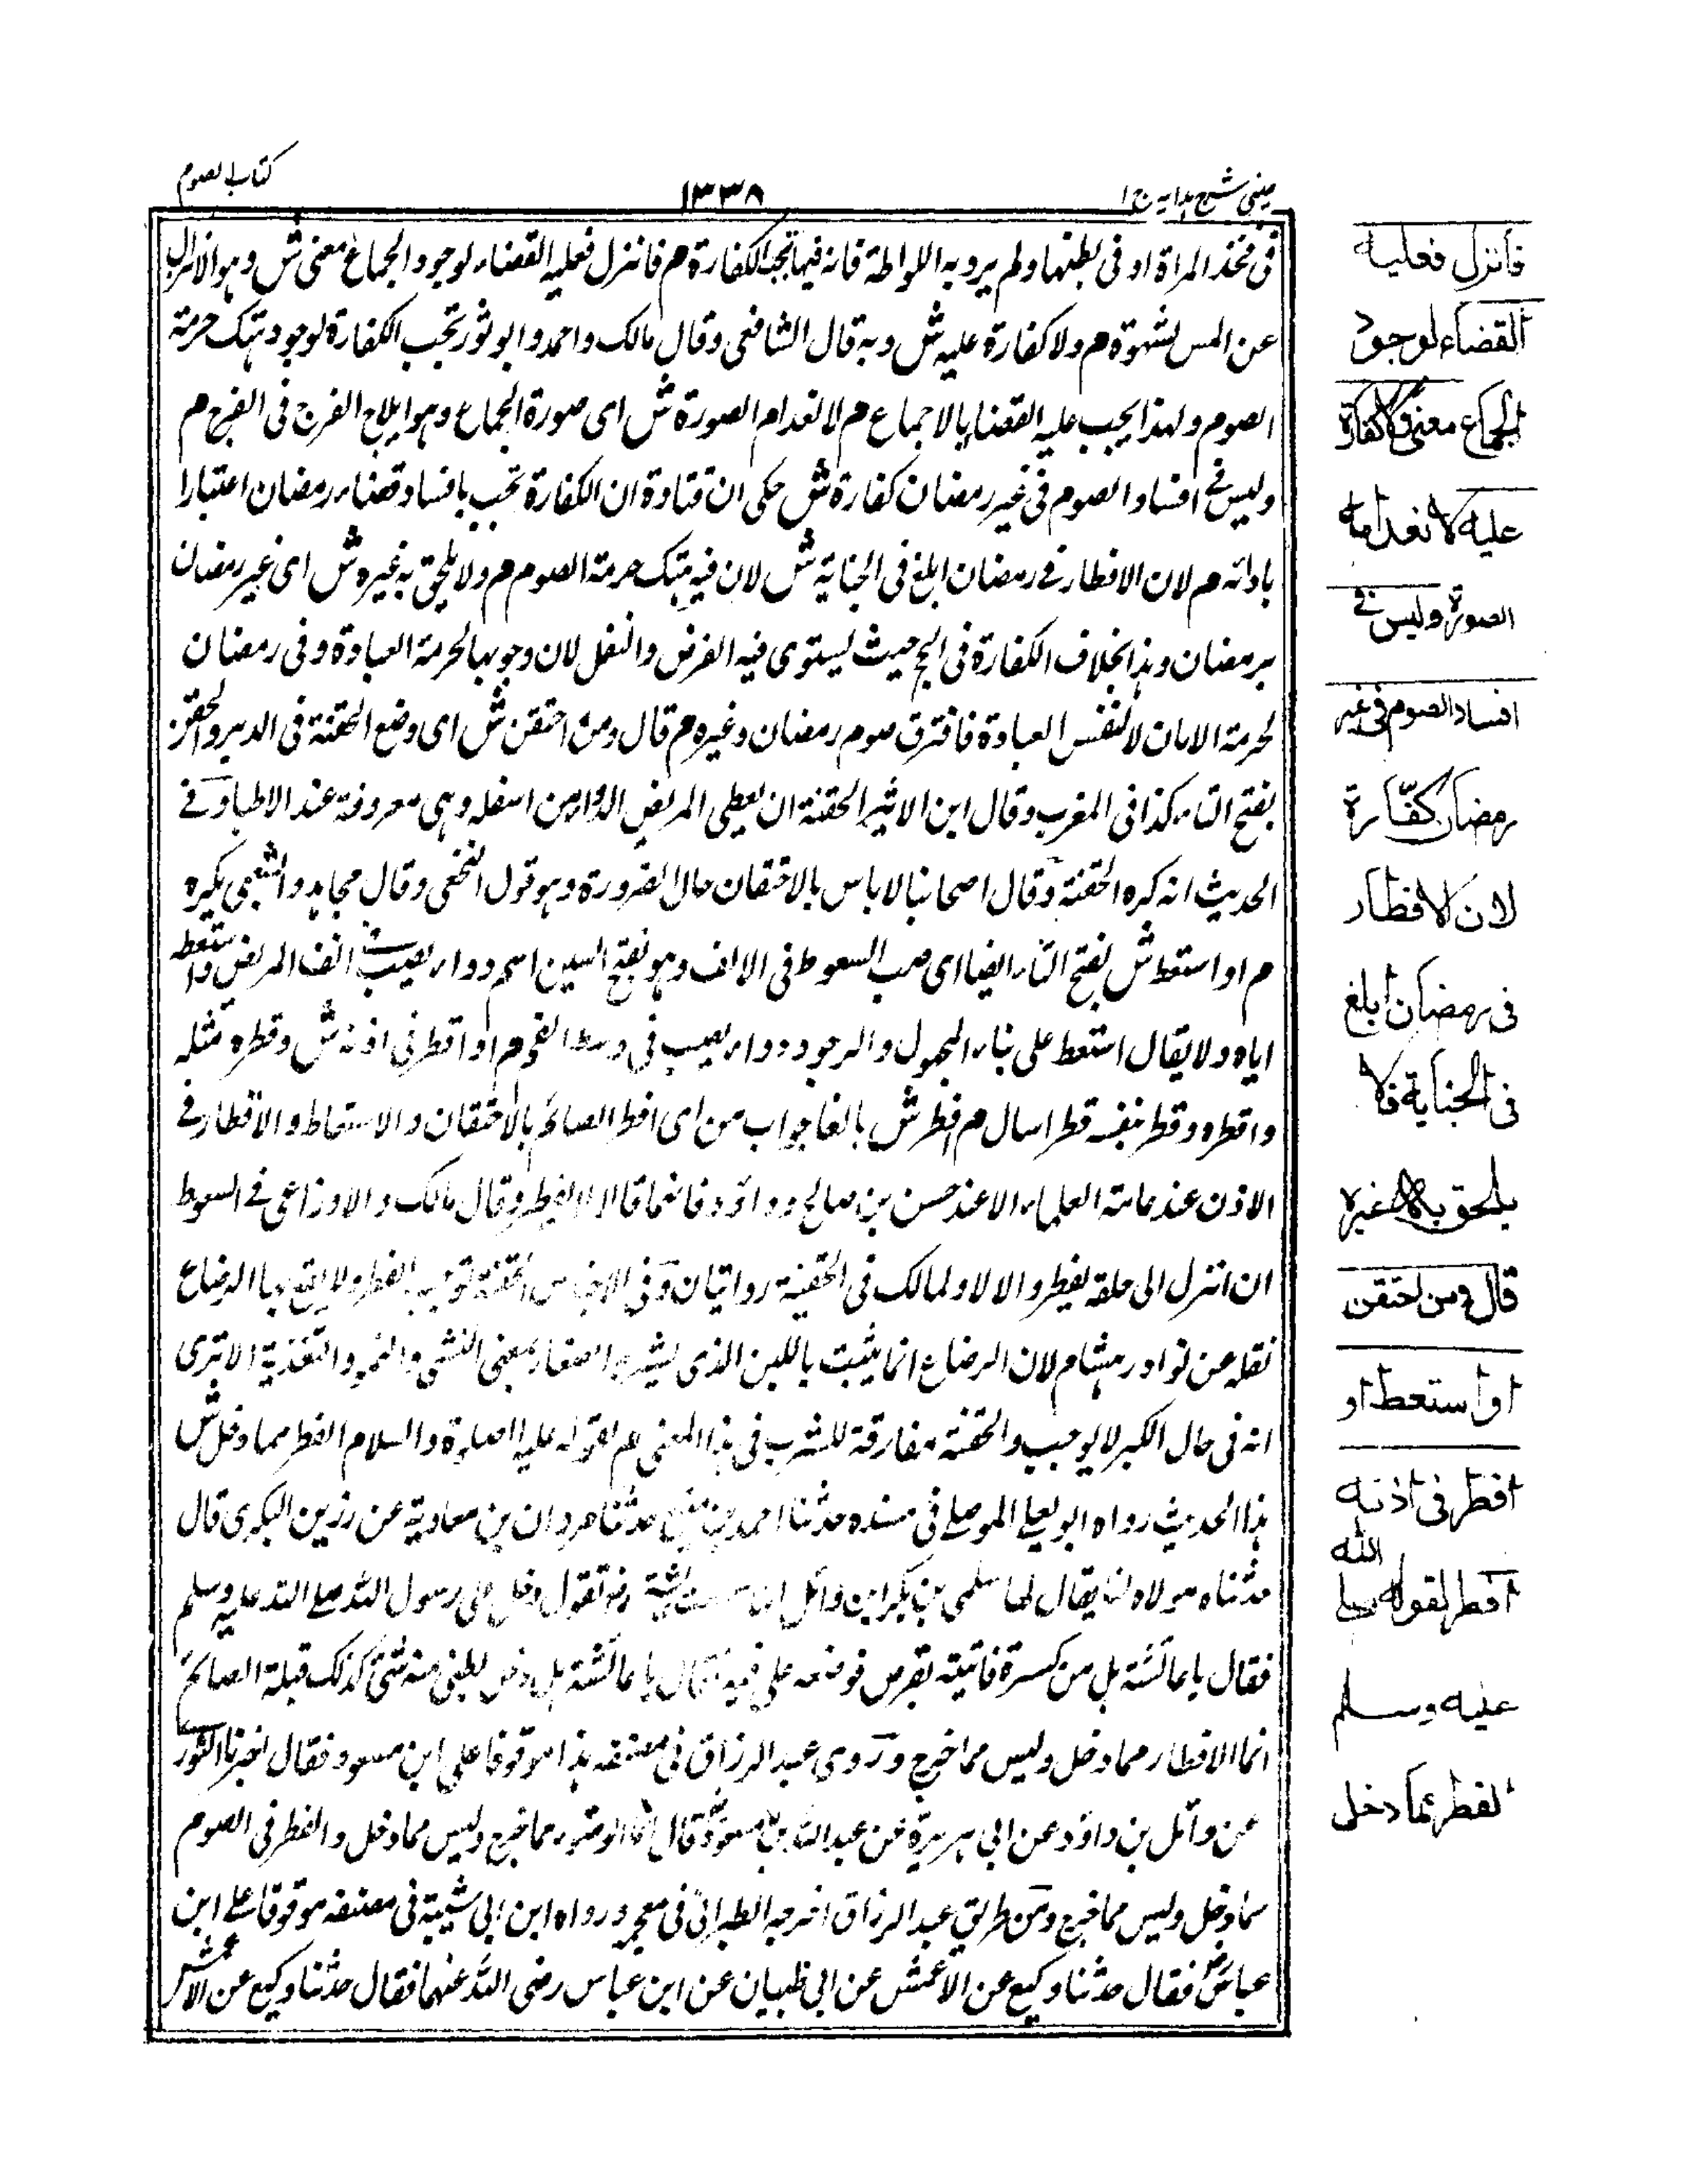 عینی شرح ہدایہ ج ١
١٣٣٨
کتاب الصوم
فى فخذ المراة او فى بطنها ولم يرد به اللواطة فانه فيها تجب الكفارة م فانزل فعليه القضاء لوجود الجماع معنى ش وهو الانزال
عن المس لشهوة م ولا كفارة عليه ش وبه قال الشافعى وقال مالك واحمد وابو ثور تجب الكفارة لوجود هتك حرمة
الصوم ولهذا يجب عليه القضا بالاجماع م لانعدام الصورة ش اى صورة الجماع وهو ايلاج الفرج فى الفرج م
وليس فى افساد الصوم فى غير رمضان كفارة ش حكى ان قتادة ان الكفارة تجب بافساد قضاء رمضان اعتبارا
بادائه م لان الافطار فے رمضان ابلغ فى الجناية ش لان فيه هتك حرمة الصوم م ولا يلحق به غيره ش اى غير رمضان
برمضان وهذا بخلاف الكفارة فى الحج حيث يستوى فيه الفرض والنفل لان وجوبها لحرمة العبادة وفى رمضان
لحرمة الامان لا لنفس العبادة فافترق صوم رمضان وغيره م قال ومن احتقن ش اى وضع الحقنة فى الدبر والحقن
بفتح التاء كذا فى المغرب وقال ابن الاثير الحقنة ان يعطى المريض الدواء من اسفله وهى معروفة عند الاطباء وفے
الحديث انه كره الحقنة وقال اصحابنا لا باس بالاحتقان حال الضرورة وهو قول النخعى وقال مجاهد والشعبى يكره
م او استعط ش بفتح التاء ايضا اى صب السعوط فى الانف وهو بفتح السين اسم دواء يصب فى انف المريض واستعطه
اياه ولا يقال استعط على بناء المجهول والوجور دواء يصب فى وسط الفم م او اقطر فى اذنه ش وقطره مثله
واقطره وقطر بنفسه قطرا سال م افطر ش بالفا جواب من اى افطر الصائم بالاحتقان والاستعاط والاقطار فے
الاذن عند عامة العلماء الا عند حسن بن صالح وداؤد فانهما قالا لا يفطر وقال مالك والاوزاعى فے السعوط
ان انزل الى حلقه يفطر والا لا ولمالك فى الحقنة روايتان وفى الاجناس الحقنة توجب الفطر ولا يقع بها الرضاع
نقله عن نوادر هشام لان الرضاع انما يثبت باللبن الذى يشربه الصغار بمعنى النشى والنمو والتغذية الا ترى
انه فى حال الكبر لا يوجب والحقنة مفارقة للشرب فى هذا المعنى م لقوله عليه الصلوة والسلام الفطر مما دخل ش
هذا الحديث رواه ابو يعلے الموصلے فى مسنده حدثنا احمد بن منيع حدثنا مروان بن معاوية عن رزين البكرى قال
حدثناه مولاة لنا يقال لها سلمى بن بكر ابن وائل انها سمعت عائشة رض تقول دخل على رسول الله صلے الله عليه وسلم
فقال يا عائشة هل من كسرة فاتيته بقرص فوضعه على فيه فقال يا عائشة هل دخل بطنى منه شئ كذلك قبلة الصائم
انما الافطار مما دخل وليس مما خرج وروى عبد الرزاق فى مصنفه هذا موقوفا على ابن مسعود فقال اخبرنا الثورى
عن وائل بن داؤد عن ابى هريرة عن عبد الله بن مسعود رض قال انما الوضوء مما خرج وليس مما دخل والفطر فى الصوم
مما دخل وليس مما خرج ومن طريق عبد الرزاق اخرجه الطبرانى فى معجمه ورواه ابن ابى شيبة فى مصنفه موقوفا علے ابن
عباس رض فقال حدثنا وكيع عن الاعمش عن ابى ظبيان عن ابن عباس رضى الله عنهما فقال حدثنا وكيع عن الاعمش
فأنزل فعليه
القضاء لوجود
الجماع معنى ولا كفارة
عليه لانعدام
الصورة وليس فے
افساد الصوم فى غير
رمضان كفّارة
لان الافطار
فى رمضان ابلغ
فى الجناية فلا
يلحق به غيره
قال ومن احتقن
او استعط او
اقطر فى اذنيه
افطر لقوله صلى الله
عليه وسلم
الفطر مما دخل